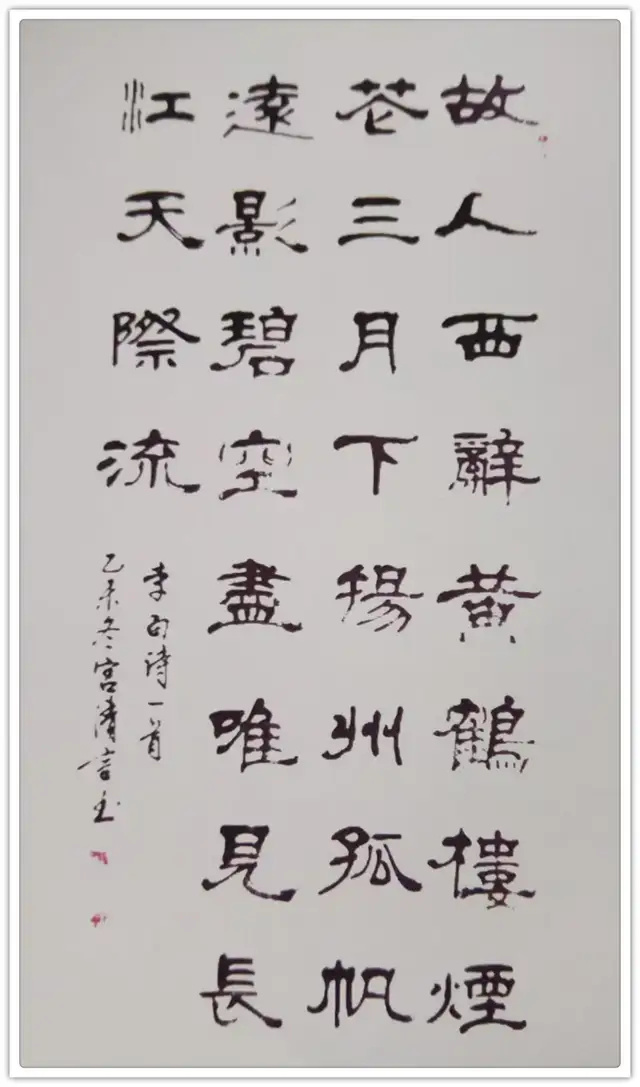 故人西辭黃鶴樓煙
花三月下揚州孤帆
遠影碧空盡唯見長
江天際流
李白诗一首
乙未冬宫清